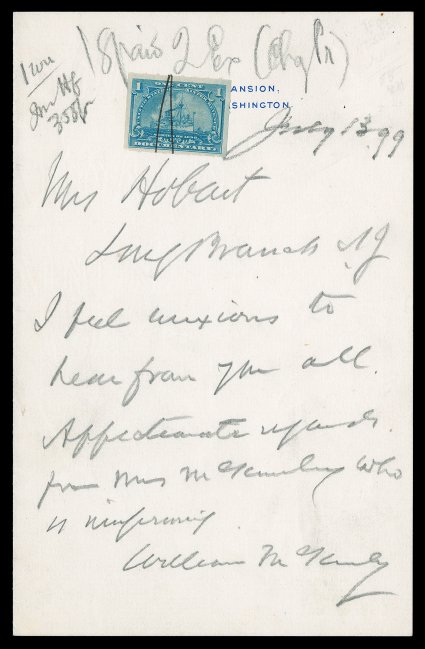 18 Paid 2 Ex (Chg Pr)
ONE CENT
1 1
DOCUMENTARY
ANSION,
SHINGTON.
July 13. 99
Mrs Hobart
Long Branch N.J
I feel anxious to
hear from you all.
Affectionate regards
from Mrs McKinley who
is improving.
William McKinley